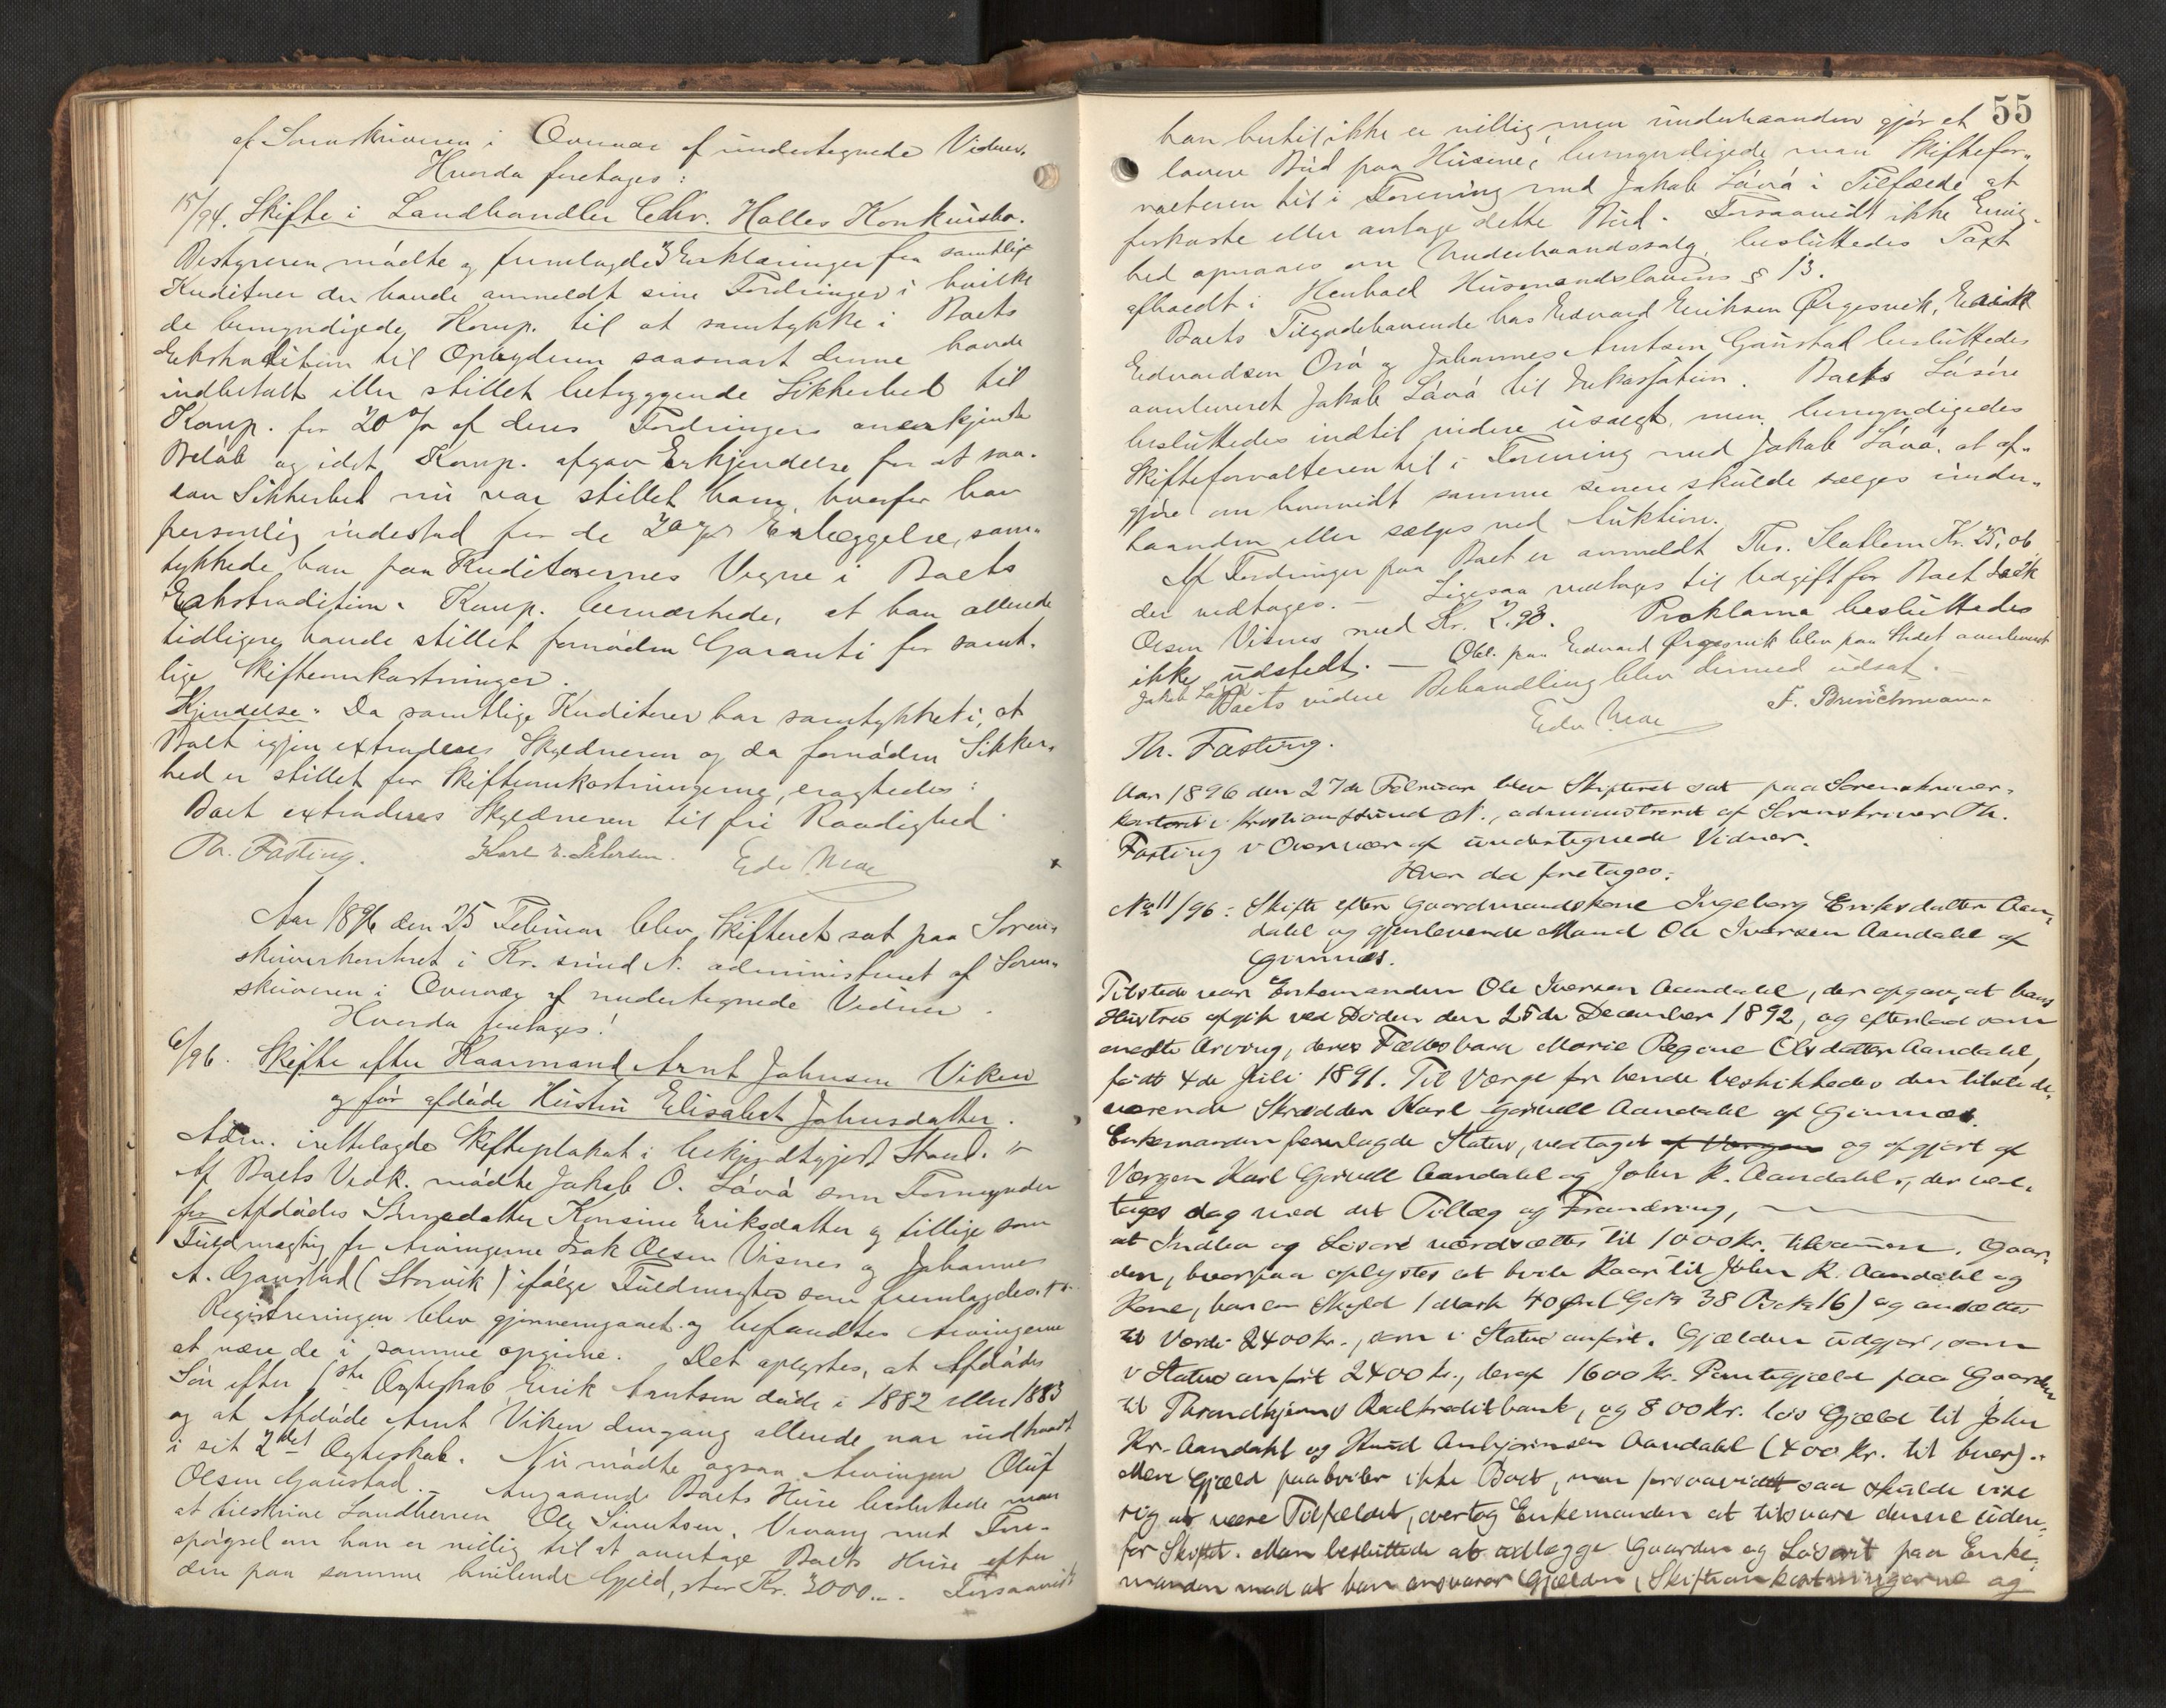 af Sorenskriveren i Overvær af undertegnede Vidner.
Hvorda foretages:
15/94. Skifte i Landhandler Chr. Halles Konkursbo.
Bestyreren mødte og fremlagde 3 Erklæringer fra samtlige
Kreditorer der havde anmeldt sine Fordringer i hvilke
de bemyndigede Komp. til at samtykke i Boets
Ekstradition til Opbyderen saasnart denne havde
indbetalt eller stillet betryggende Sikkerhed til
Komp. for 20 % af deres Fordringers anerkjendte
Beløb og idet Komp. afgav Erkjendelse for at saa-
dan Sikkerhed nu var stillet ham, hvorfor han
personlig indestod for de 20 % Erlæggelse, sam-
tykkede han paa Kreditorernes Vegne i Boets
Ekstradition. Komp. bemærkede, at han allerede
tidligere havde stillet fornøden Garanti for samt-
lige Skifteomkostninger.
Kjendelse: Da samtlige Kreditorer har samtykket i, at
Boet igjen extraderes Skyldneren og da fornøden Sikker-
hed er stillet for Skifteomkostningerne, eragtedes:
Boet extraderes Skyldneren til fri Raadighed.
Th. Fasting. Karl E. Petersen. Edv. Moe
Aar 1896 den 25 Februar blev Skifteret sat paa Soren-
skriverkontoret i Kr.sund N. administreret af Soren-
skriveren i Overvær af undertegnede Vidner.
Hvorda foretages:
6/96. Skifte efter Kaarmand Arnt Johnsen Viken
og før afdøde Hustru Elisabet Johnsdatter.
Adm. irettelagde Skifteplakat i bekjendtgjort Stand.
Af Boets Vedk. mødte Jakob O. Løvå som Formynder
for Afdødes Sønnedatter Konsine Eriksdatter og tillige som
Fuldmægtig for Arvingerne Isak Olsen Visnes og Johannes
A. Gaustad (Storvik) ifølge Fuldmagter som fremlagdes.
Registreringen blev gjennemgaaet og befandtes Arvingerne
at være de i samme opgivne. Det oplystes, at Afdødes
Søn efter 1ste Ægteskab Erik Arntsen døde i 1882 eller 1883
og at Afdøde Arnt Viken dengang allerede var indtraadt
i sit 2det Ægteskab. Nu mødte ogsaa Arvingen Oluf
Olsen Gaustad. – Angaaende Boets Huse besluttede man
at tilskrive Landherren Ole Sivertsen, Vevang med Fore-
spørgsel om han er villig til at overtage Boets Huse efter
den paa samme hvilende Gjeld, stor Kr. 3000.-. Forsaavidt
55
han hertil ikke er villig, men underhaanden gjør et
lavere Bud paa Husene, bemyndigede man Skiftefor-
valteren til i Forening med Jakob Løvå i Tilfælde at
forkaste eller antage dette Bud. Forsaavidt ikke Enig-
hed opnaaes om Underhaandssalg besluttedes Taxt
afholdt i Henhold Husmandslovens § 13.
Boets Tilgodehavende hos Edvard Eriksen Ørgesvik, Erik
Edvardsen Orå og Johannes Arntsen Gaustad besluttedes
overleveret Jakob Løvå til Inkassation. Boets Løsøre
besluttedes indtil videre usolgt, men bemyndigedes
Skifteforvalteren til i Forening med Jakob Løvå at af-
gjøre om hvorvidt samme senere skulde sælges under-
haanden eller sælges ved Auktion.
Af Fordringer paa Boet er anmeldt Ths. Slatlem Kr. 25,06
der vedtages. – Ligesaa vedtages til Udgift for Boet Isak
Olsen Visnes med Kr. 2.90. Proklama besluttedes
ikke udstedt. – Obl. paa Edvard Ørgesvik blev paa Stedet overleveret
Jakob Løvå. Boets videre Behandling blev dermed udsat.
Th. Fasting. Edv. Moe F. Brinchmann
Aar 1896 den 27de Februar blev Skifteret sat paa Sorenskriver-
kontoret i Kristianssund N., administreret af Sorenskriver Th.
Fasting i Overvær af undertegnede Vidner.
Hvor da foretages:
No 11/96: Skifte efter Gaardmandskone Ingeborg Eriksdatter Aan-
dahl og gjenlevende Mand Ole Iversen Aandahl af
Gimnæs.
Tilstede var Enkemanden Ole Iversen Aandahl, der opgav, at hans
Hustru afgik ved Døden den 25de December 1892, og efterlod som
eneste Arving, deres Fællesbarn Marie Regine Olsdatter Aandahl,
født 4de Juli 1891. Til Værge for hende beskikkedes den tilstede-
værende Skrædder Karl Gjøvell Aandahl af Gimnæs.
Enkemanden fremlagde Status, vedtaget af Værgen og afgjort af
Værgen Karl Gjøvell Aandahl og John K. Aandahl, der ved-
toges dog med det Tillæg og Forandring,
at Indbo og Løsøre værdsættes til 1000 kr. tilsammen. Gaar-
den, hvorpaa oplystes at hvile Kaar til John K. Aandahl og
Kone, har en Skyld 1 Mark 40 Øre (G.No 38 B.No 16) og ansættes
til Værdi 2400 kr., som i Status anført. Gjælden udgjør, som
i Status anført 2400 kr., deraf 1600 kr. Pantegjæld paa Gaarden
til Throndhjems Realkreditbank, og 800 kr. løs Gjæld til John
Kr. Aandahl og Knud Anbjørnsen Aandahl (400 kr. til hver).
Mere Gjæld paahviler ikke Boet, men forsaavidt saa skulde vise
sig at være Tilfældet, overtog Enkemanden at tilsvare denne uden-
for Skiftet. Man besluttede at udlægge Gaarden og Løsøret paa Enke-
manden mod at han ansvarer Gjælden, Skifteomkostningerne og